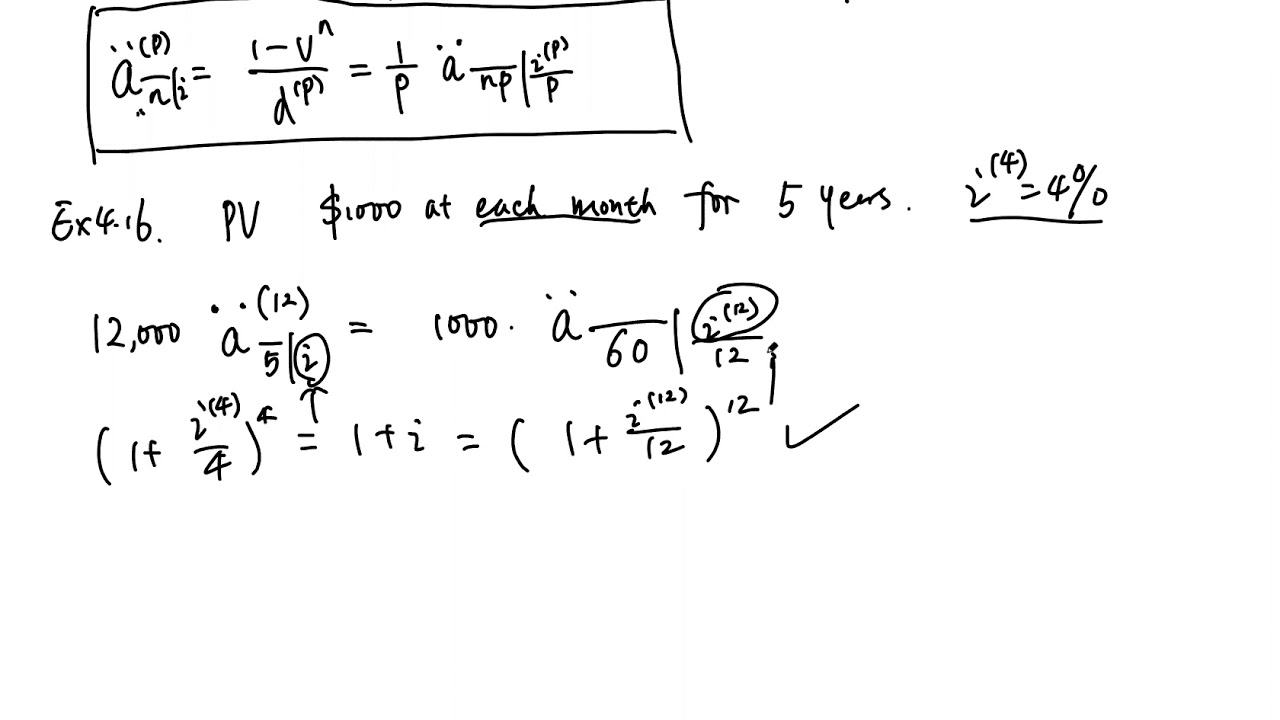 ä^{(p)}_{n|i} = \frac{1-v^n}{d^{(p)}} = \frac{1}{p} ä_{np|\frac{i^{(p)}}{p}}
Ex4.16. PV $1000 at each month for 5 years. i^{(4)}=4%
12,000 ä^{(12)}_{5|i} = 1000· ä_{60|\frac{i^{(12)}}{12}}
(1+\frac{i^{(4)}}{4})^4 = 1+i = (1+\frac{i^{(12)}}{12})^{12} ✓